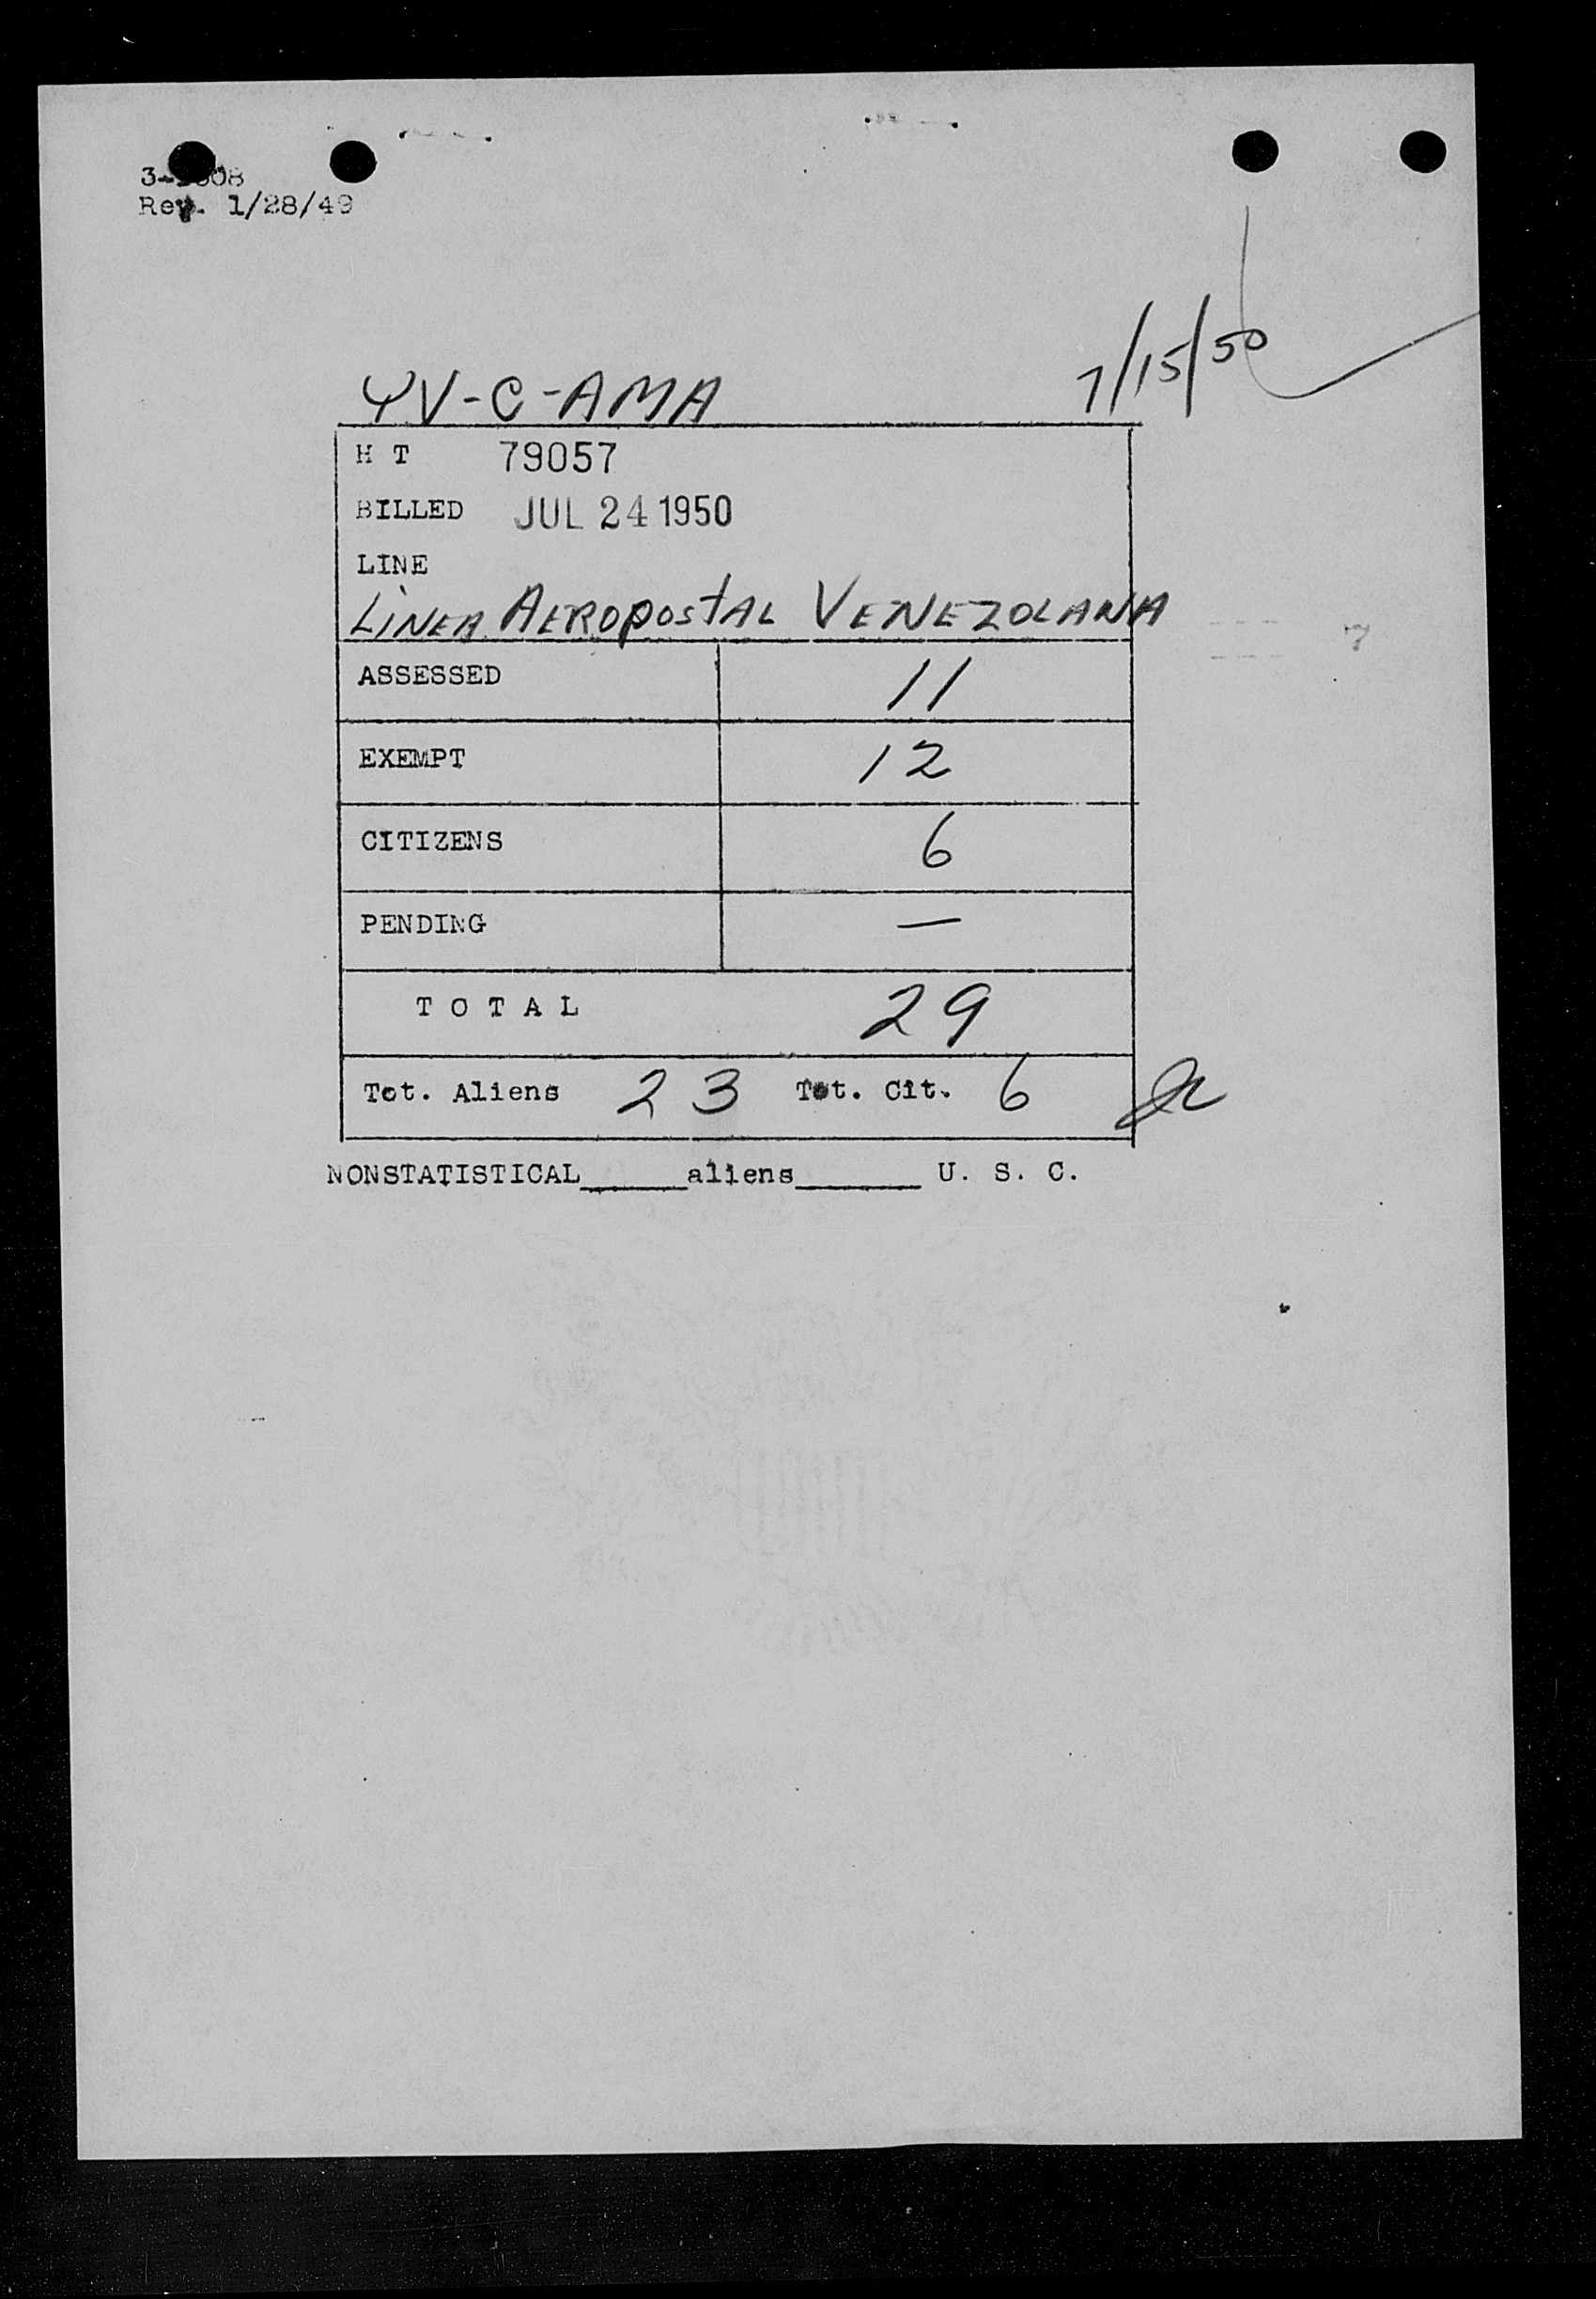 Rev. 1/28/49
YV-C-AMA 7/15/50
H T 79057
BILLED JUL 24 1950
LINE
LINEA AEROPOSTAL VENEZOLANA
ASSESSED 11
EXEMPT 12
CITIZENS 6
PENDING —
TOTAL 29
Tot. Aliens 23 Tot. Cit. 6
NONSTATISTICAL______aliens_______ U. S. C.